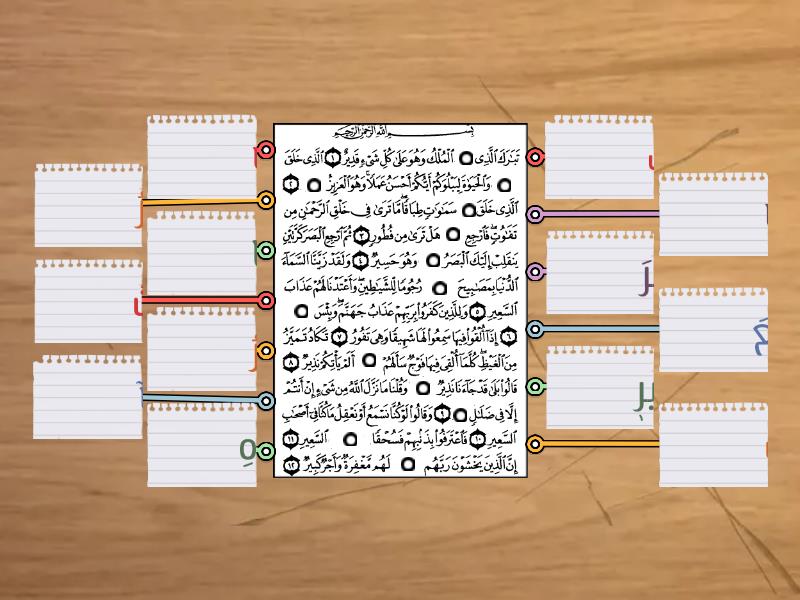 بِسْمِ اللَّهِ الرَّحْمَٰنِ الرَّحِيمِ
تَبَارَكَ الَّذِي الْمُلْكُ وَهُوَ عَلَىٰ كُلِّ شَيْءٍ قَدِيرٌ ١ الَّذِي خَلَقَ
وَالْحَيَاةَ لِيَبْلُوَكُمْ أَيُّكُمْ أَحْسَنُ عَمَلًا وَهُوَ الْعَزِيزُ ٢
الَّذِي خَلَقَ سَمَاوَاتٍ طِبَاقًا مَّا تَرَىٰ فِي خَلْقِ الرَّحْمَٰنِ مِن
تَفَاوُتٍ فَارْجِعِ هَلْ تَرَىٰ مِن فُطُورٍ ٣ ثُمَّ ارْجِعِ الْبَصَرَ كَرَّتَيْنِ
يَنقَلِبْ إِلَيْكَ الْبَصَرُ وَهُوَ حَسِيرٌ ٤ وَلَقَدْ زَيَّنَّا السَّمَاءَ
الدُّنْيَا بِمَصَابِيحَ رُجُومًا لِّلشَّيَاطِينِ وَأَعْتَدْنَا لَهُمْ عَذَابَ
السَّعِيرِ ٥ وَلِلَّذِينَ كَفَرُوا بِرَبِّهِمْ عَذَابُ جَهَنَّمَ وَبِئْسَ
٦ إِذَا أُلْقُوا فِيهَا سَمِعُوا لَهَا شَهِيقًا وَهِيَ تَفُورُ ٧ تَكَادُ تَمَيَّزُ
مِنَ الْغَيْظِ كُلَّمَا أُلْقِيَ فِيهَا فَوْجٌ سَأَلَهُمْ أَلَمْ يَأْتِكُمْ نَذِيرٌ ٨
قَالُوا بَلَىٰ قَدْ جَاءَنَا نَذِيرٌ وَقُلْنَا مَا نَزَّلَ اللَّهُ مِن شَيْءٍ إِنْ أَنتُمْ
إِلَّا فِي ضَلَالٍ ٩ وَقَالُوا لَوْ كُنَّا نَسْمَعُ أَوْ نَعْقِلُ مَا كُنَّا فِي أَصْحَابِ
السَّعِيرِ ١٠ فَاعْتَرَفُوا بِذَنبِهِمْ فَسُحْقًا السَّعِيرِ ١١
إِنَّ الَّذِينَ يَخْشَوْنَ رَبَّهُم لَهُم مَّغْفِرَةٌ وَأَجْرٌ كَبِيرٌ ١٢